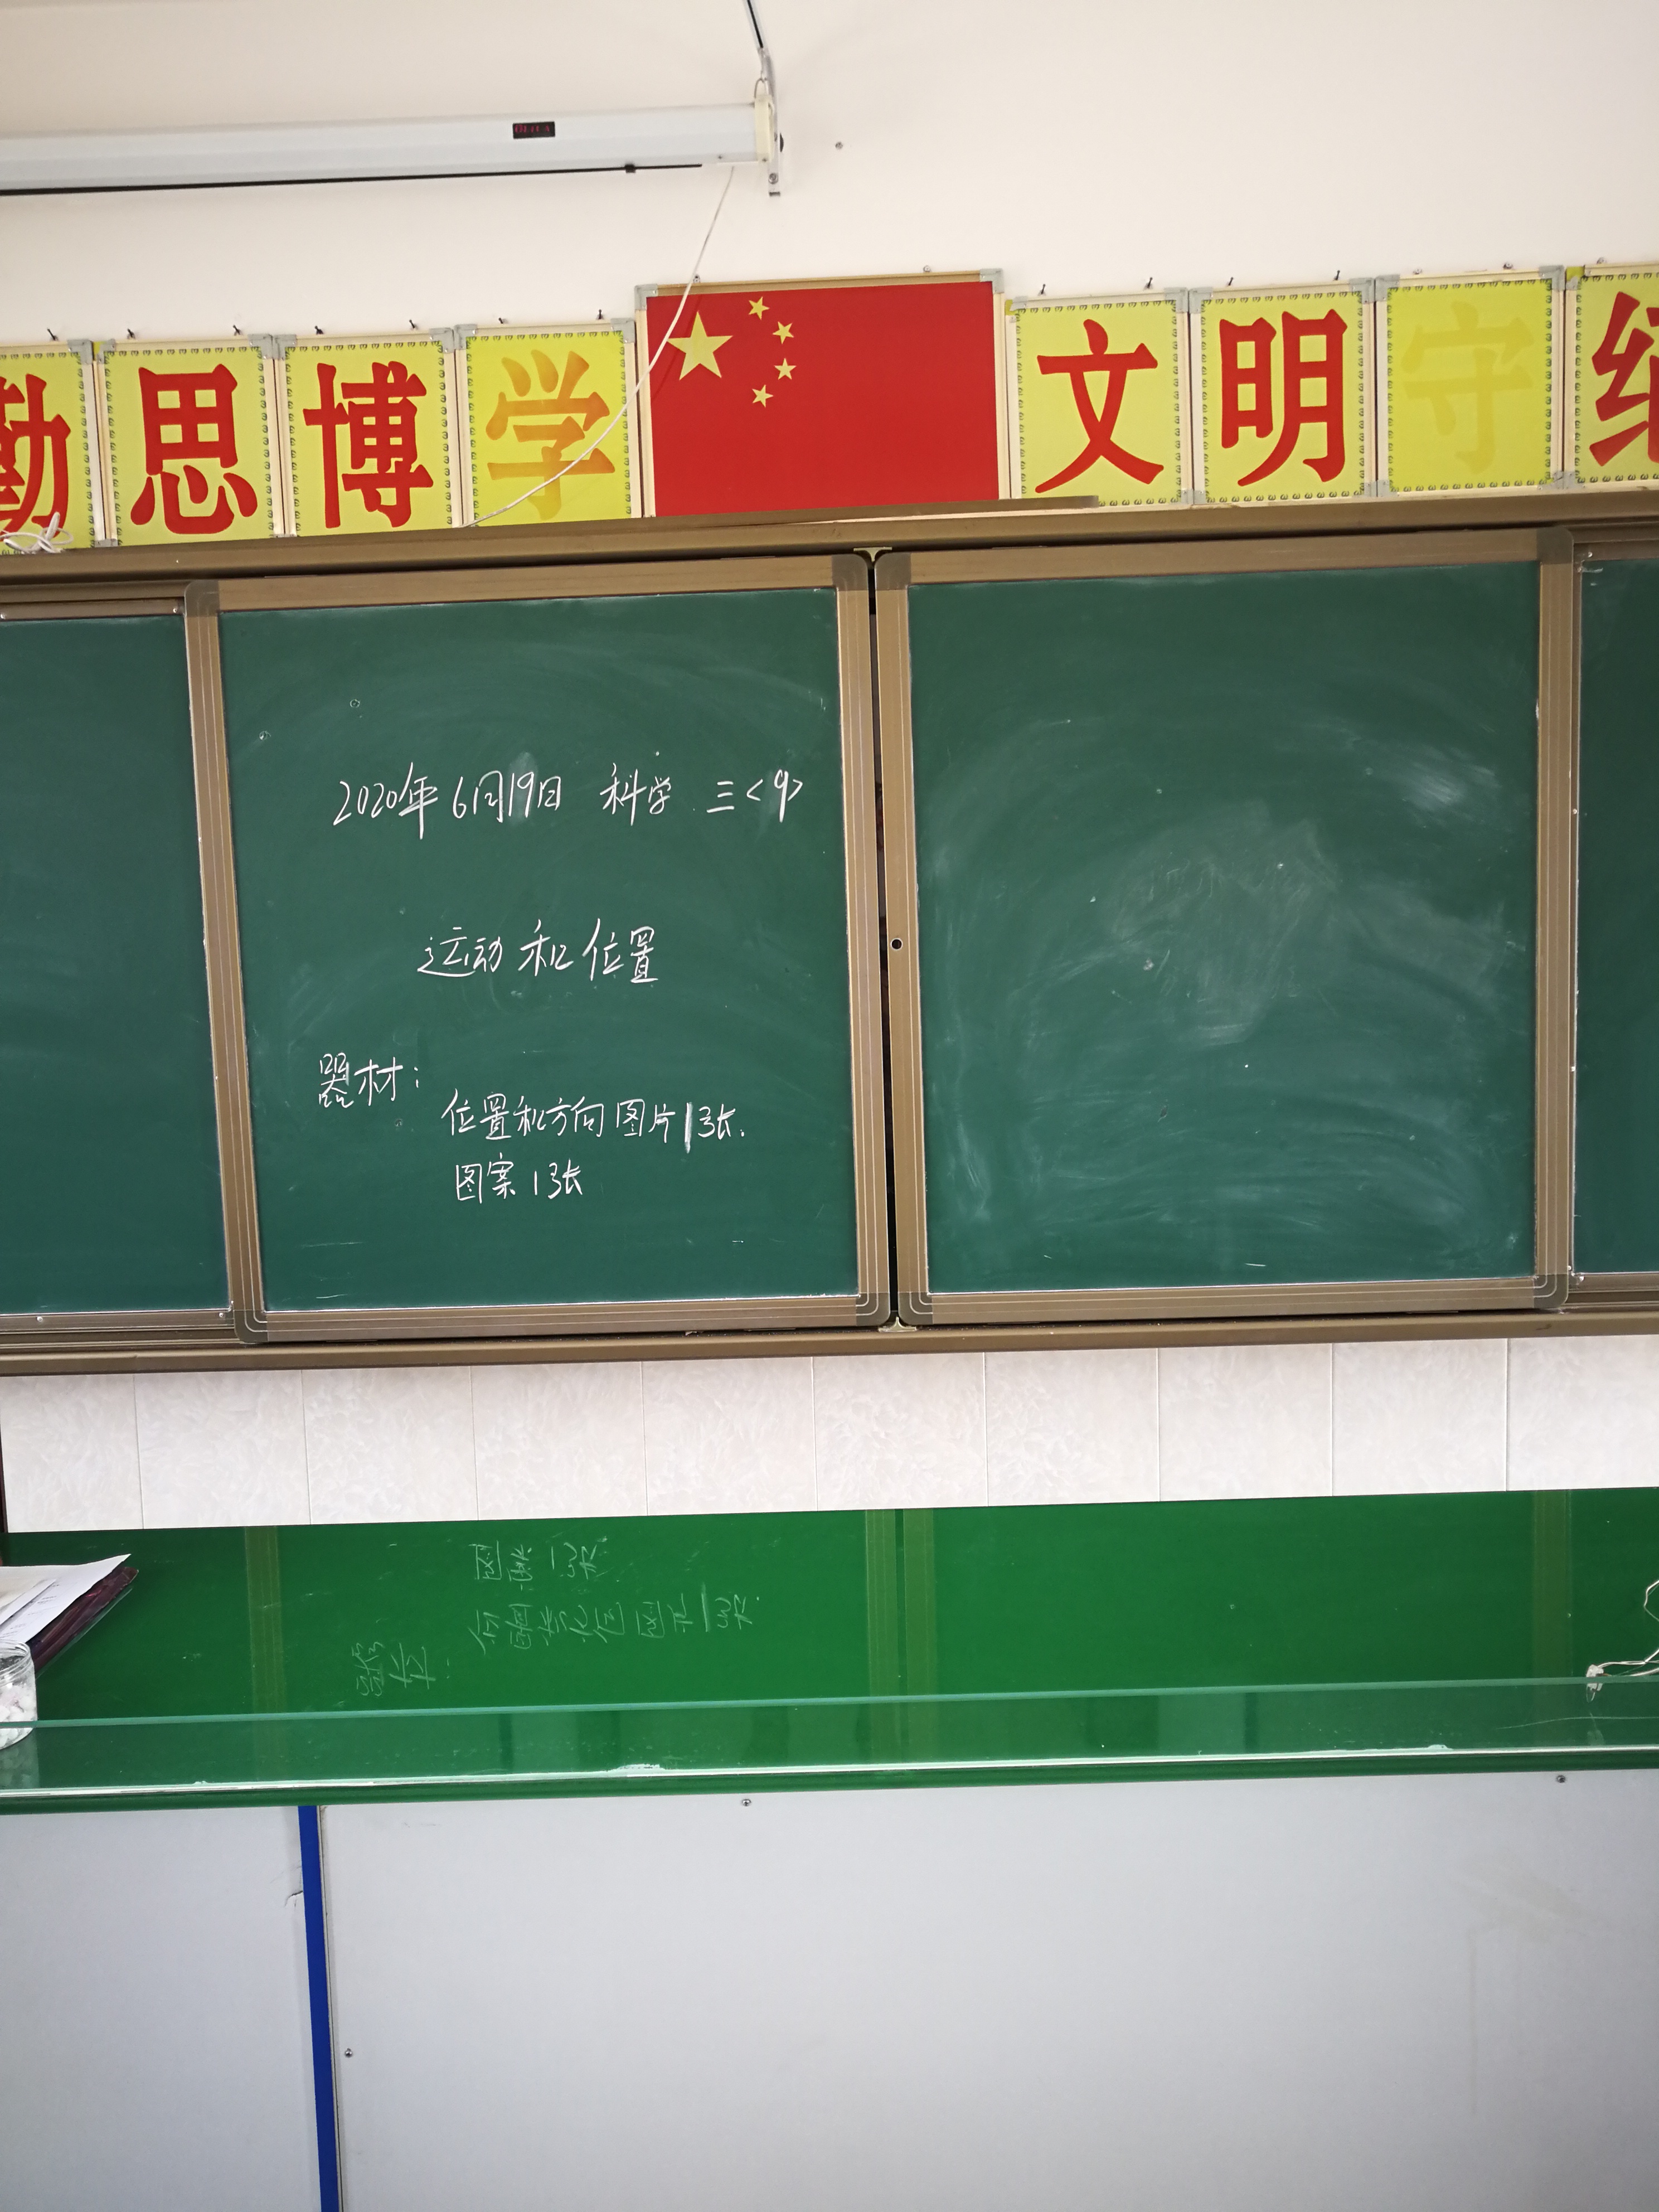 勤思博学 文明守纪
2020年6月19日 科学 三<9>
运动和位置
器材:
位置和方向图片1张.
图案1张